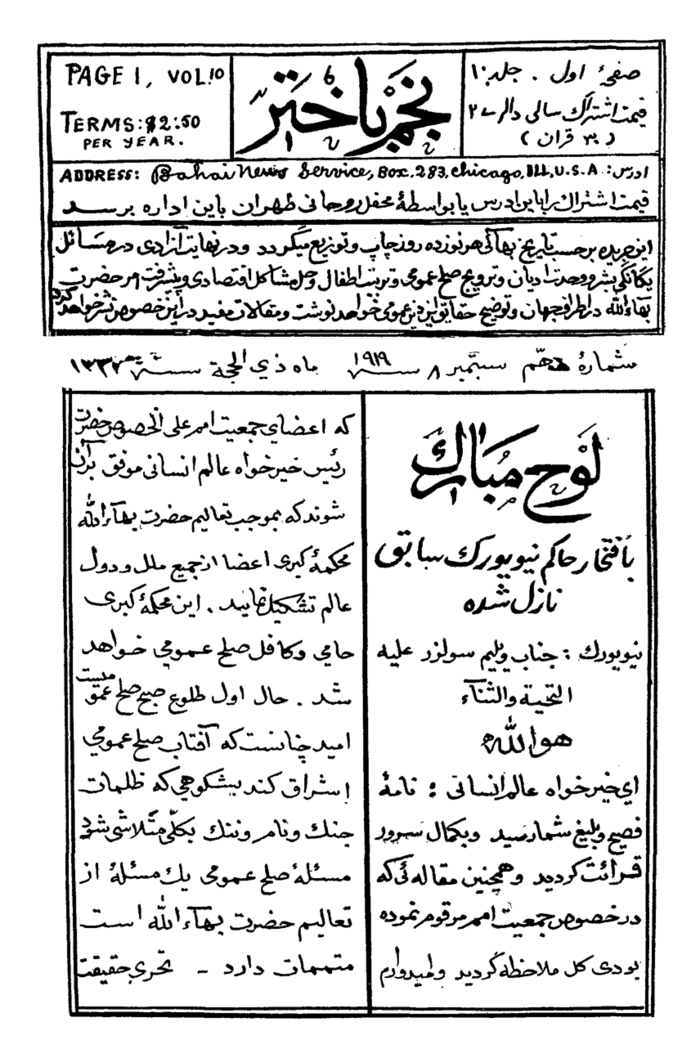 PAGE 1, VOL.10
TERMS: $2:50
PER YEAR.
نجم باختر
صفحهٔ اول . جلد ۱۰
قیمت اشتراک سالی دالر ۲
( ۳۰ قران )
ADDRESS: Bahai News Service, Box, 283, Chicago, Ill., U.S.A. ادرس:
قیمت اشتراک را باین ادرس یا بواسطهٔ محفل روحانی طهران باین اداره برسد
این جریده برحسب تاریخ بهائی هر نوزده روز چاپ و توزیع میگردد و در نهایت آزادی در مسائل
یگانگی بشر و وحدت ادیان و ترویج صلح عمومی و تربیت اطفال و حل مشاکل اقتصادی و پیشرفت امر حضرت
بهاءالله در اطراف جهان و توضیح حقایق این دین عمومی خواهد نوشت و مقالات مفید در این خصوص نشر خواهد کرد
شمارهٔ دهم سبتمبر ۸ سنه ۱۹۱۹ ماه ذي الحجة سنه ۱۳۳۷
لوح مبارک
بافتخار حاکم نیویورک سابق
نازل شده
نیویورک : جناب ویلیم سولزر علیه
التحیة والثنآء
هوالله
ای خیر خواه عالم انسانی : نامهٔ
فصیح و بلیغ شما رسید و بکمال سرور
قرائت گردید و همچنین مقاله ئی که
در خصوص جمعیت امم مرقوم نموده
بودی کل ملاحظه گردید و امیدوارم
که اعضای جمعیت امم علی الخصوص حضرت
رئیس خیرخواه عالم انسانی موفق بر آن
شوند که بموجب تعالیم حضرت بهآءالله
محکمهٔ کبری اعضا از جمیع ملل و دول
عالم تشکیل نمایند . این محکمهٔ کبری
حامی و کافل صلح عمومی خواهد
شد . حال اول طلوع صبح صلح عمومیست
امید چنانست که آفتاب صلح عمومی
اشراق کند بشکوهی که ظلمات
جنک و نام و ننک بکلی متلاشی شود
مسئلهٔ صلح عمومی یک مسئلهٔ از
تعالیم حضرت بهآءالله است
متممات دارد - تحری حقیقت